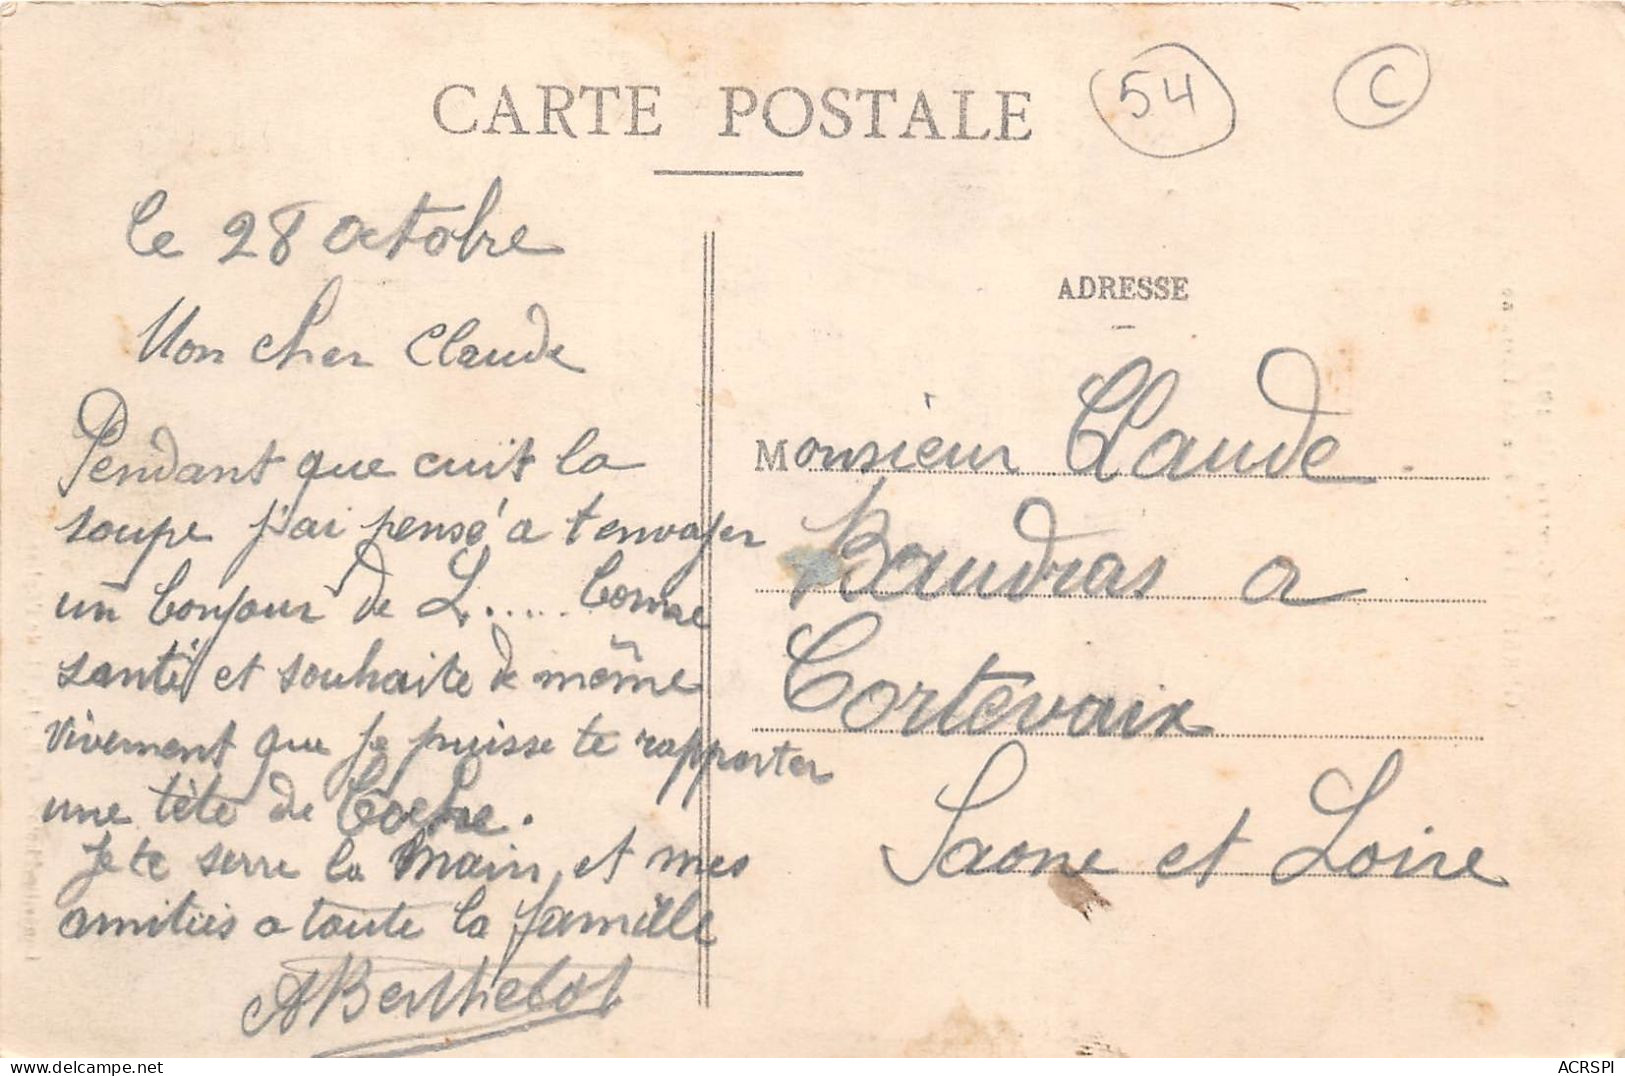 CARTE POSTALE
54
C
le 28 octobre
Mon cher Claude
Pendant que cuit la
soupe j'ai pensé a t envoyer
un bonjour de L..... bonne
santé et souhaite de même
vivement que je puisse te rapporter
une tête de boche.
Je te serre la main et mes
amitiés a toute la famille
ABerthelot
ADRESSE
Monsieur Claude
Baudras a
Cortevaix
Saone et Loire
ACRSPI